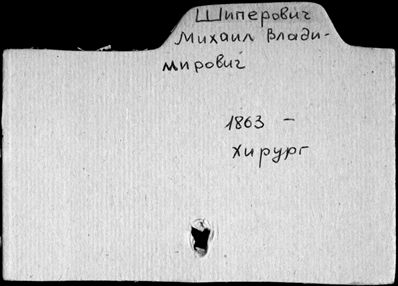 Шиперович
Михаил Влади-
мирович
1863 -
хирург